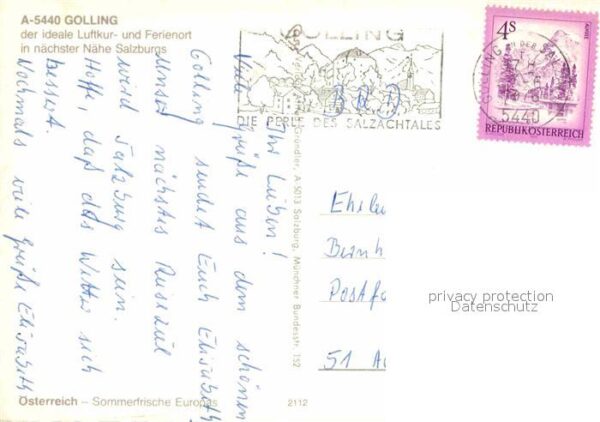 A-5440 GOLLING
der ideale Luftkur- und Ferienort
in nächster Nähe Salzburgs
GOLLING
DIE PERLE DES SALZACHTALES
BRD
4S
REPUBLIK ÖSTERREICH
GOLLING AN DER SALZ
5440
Ihr Lieben!
Viele Grüße aus dem schönen
Golling sendet Euch Elisabeth
Unser nächstes Reiseziel
wird Salzburg sein.
Hoffe, daß das Wetter sich
bessert.
Nochmals viele Grüße Elisabeth
Gründler, A 5013 Salzburg, Münchner Bundesstr. 152
Ehel
Bernh
Postfa
51 Aa
privacy protection
Datenschutz
Österreich – Sommerfrische Europas
2112